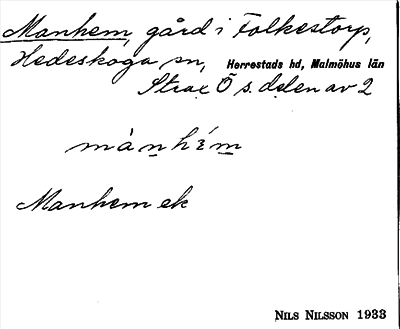 Manhem, gård i Folkestorp,
Hedeskoga sn, Herrestads hd, Malmöhus län
Strax Ö s. delen av 2
mànhém
Manhem ek
NILS NILSSON 1933